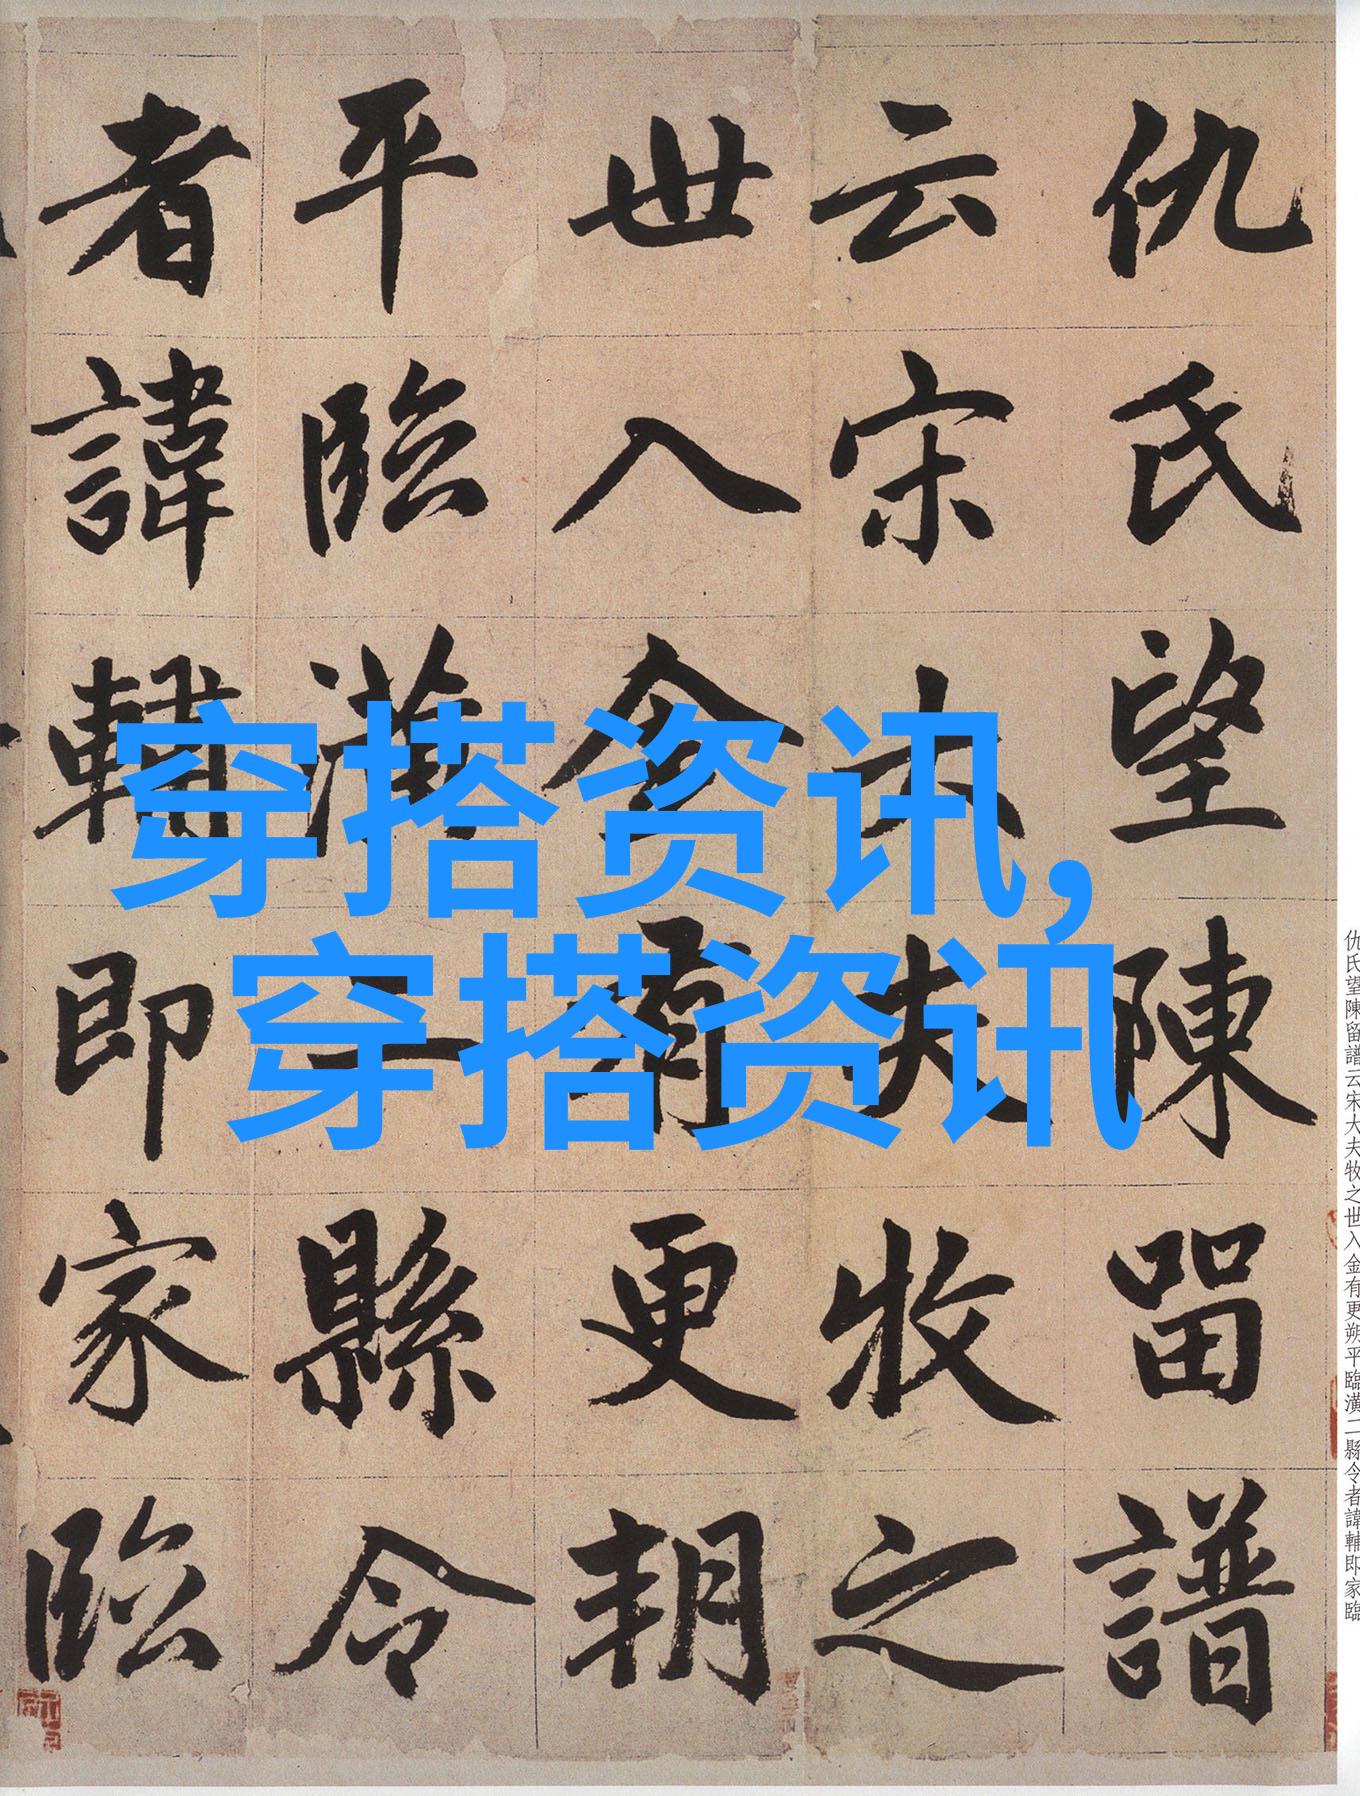 穿搭资讯,
穿搭资讯
仇氏望陳留譜
云宋大夫牧之
世入金有更朔
平臨潢二縣令
者諱輔即家臨
仇氏望陳留譜云宋大夫牧之世入金有更朔平臨潢二縣令者諱輔即家臨